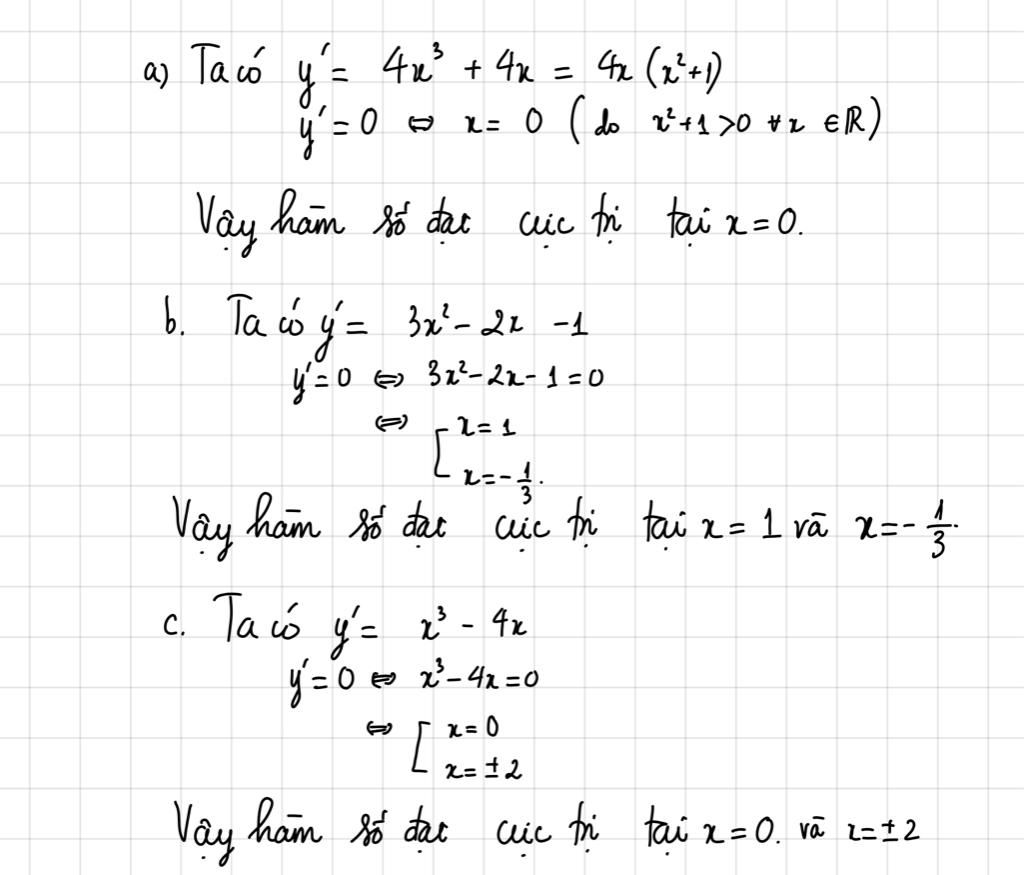 a) Ta có y' = 4x³ + 4x = 4x (x²+1)
y' = 0 ⇔ x = 0 ( do x²+1 >0 ∀x ∈ℝ)
Vậy hàm số đạt cực trị tại x = 0.
b. Ta có y' = 3x² - 2x - 1
y' = 0 ⇔ 3x² - 2x - 1 = 0
⇔ [ x = 1
x = - 1/3.
Vậy hàm số đạt cực trị tại x = 1 và x = - 1/3.
c. Ta có y' = x³ - 4x
y' = 0 ⇔ x³ - 4x = 0
⇔ [ x = 0
x = ± 2
Vậy hàm số đạt cực trị tại x = 0. và x = ± 2